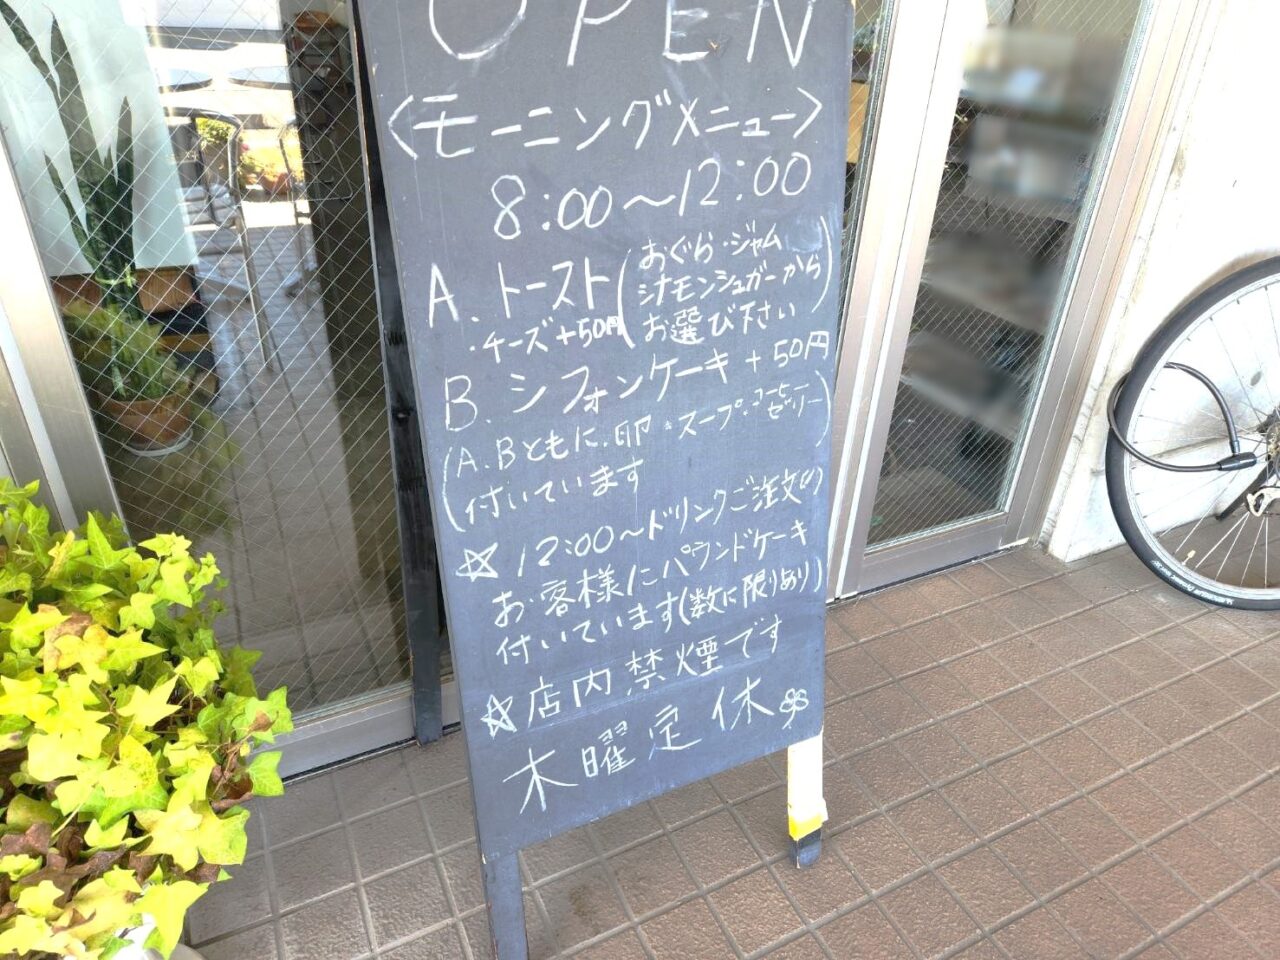 OPEN
<モーニングメニュー>
8:00～12:00
A.トースト(おぐら・ジャム
シナモンシュガーから
お選び下さい)
・チーズ+50円
B.シフォンケーキ+50円
(A.Bともに.卵・スープ・コーヒーゼリー
付いています)
☆12:00～ドリンクご注文の
お客様にパウンドケーキ
付いています(数に限りあり)
☆店内禁煙です
木曜定休